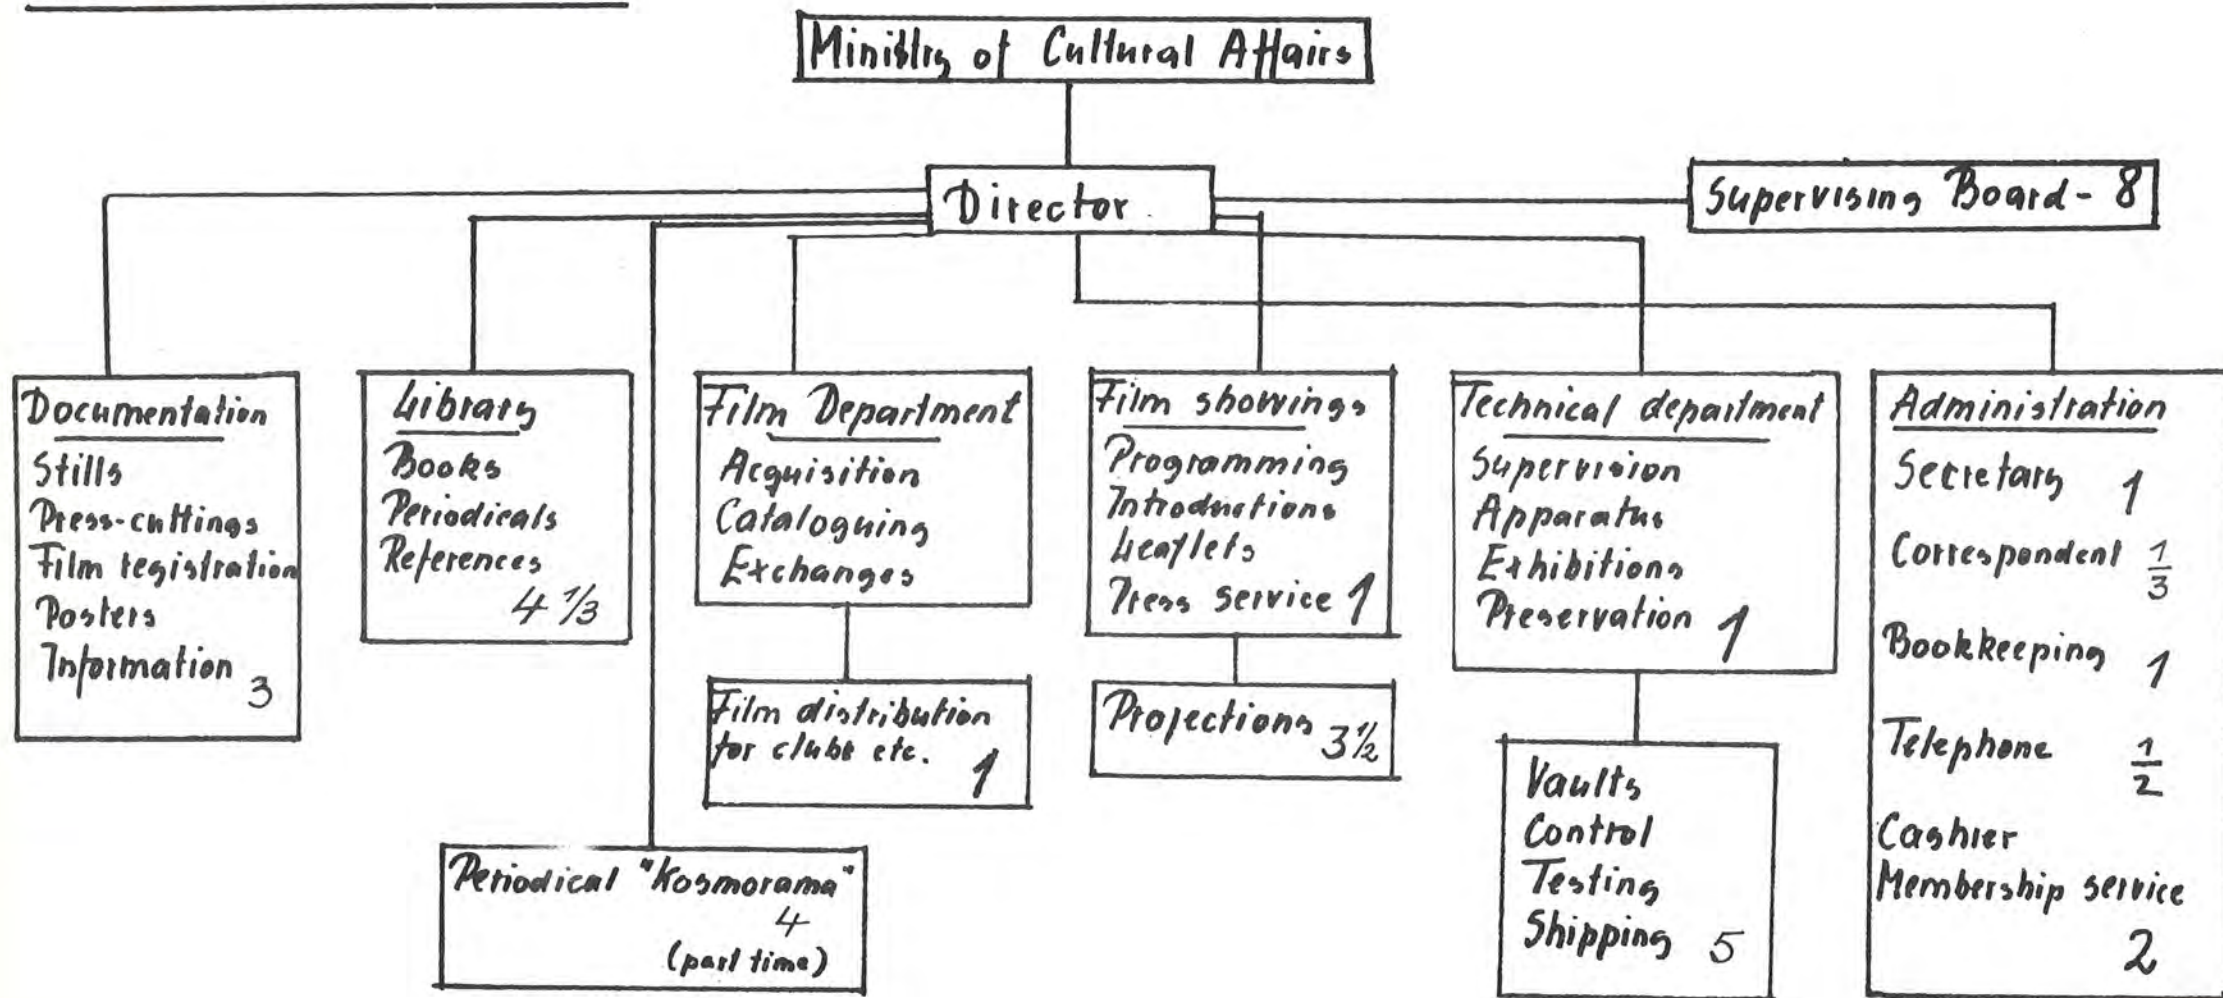 Ministry of Cultural Affairs
Director
Supervising Board - 8
Documentation
Stills
Press-cuttings
Film registration
Posters
Information 3
Library
Books
Periodicals
References
4 1/3
Film Department
Acquisition
Cataloguing
Exchanges
Film distribution
for clubs etc. 1
Periodical "Kosmorama"
4
(part time)
Film showings
Programming
Introductions
Leaflets
Press service 1
Projections 3 1/2
Technical department
Supervision
Apparatus
Exhibitions
Preservation 1
Vaults
Control
Testing
Shipping 5
Administration
Secretary 1
Correspondent 1/3
Bookkeeping 1
Telephone 1/2
Cashier
Membership service
2